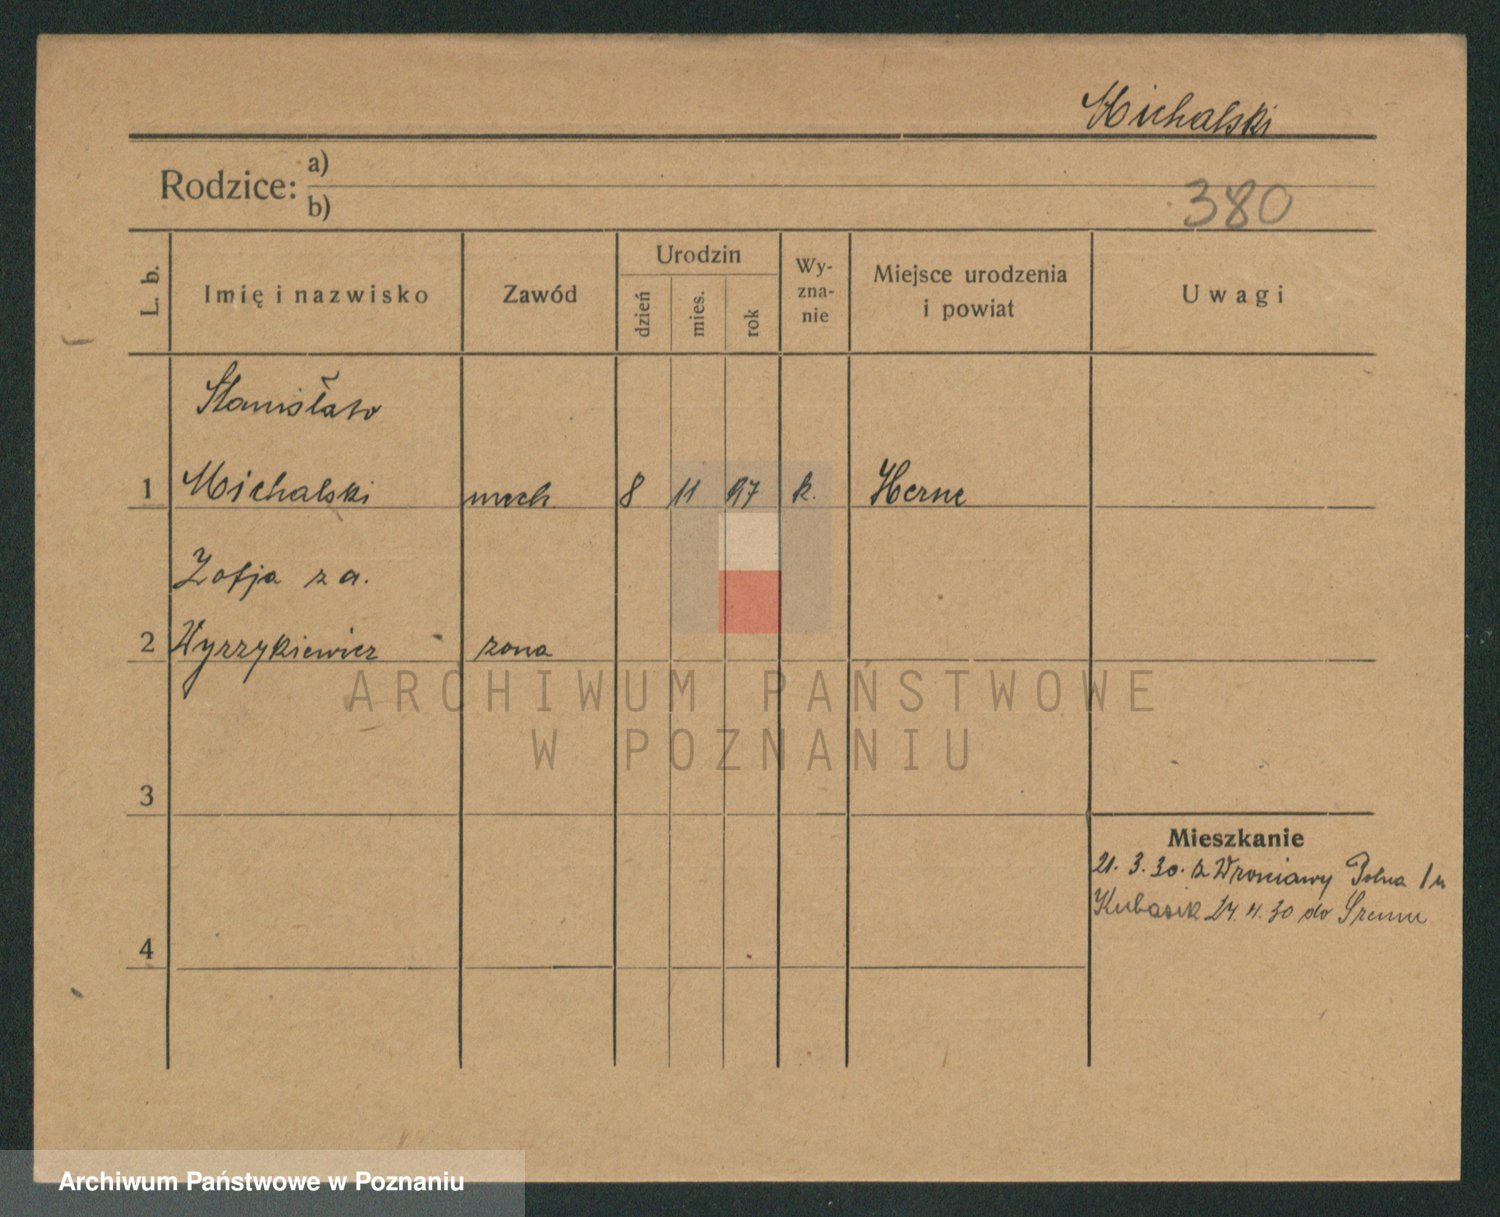 Michalski
Rodzice: a)
b)
380
L. b.
Imię i nazwisko
Zawód
Urodzin
dzień
mies.
rok
Wy-
zna-
nie
Miejsce urodzenia
i powiat
Uwagi
Stanisław
1 Michalski mech 8 11 97 k. Herne
Zofja z a.
2 Wyrzykiewicz zona
3
4
Mieszkanie
21. 3. 30. z Wroniawy Polna 1 u
Kubasik 24. 4. 30 do Sremu
ARCHIWUM PAŃSTWOWE
W POZNANIU
Archiwum Państwowe w Poznaniu